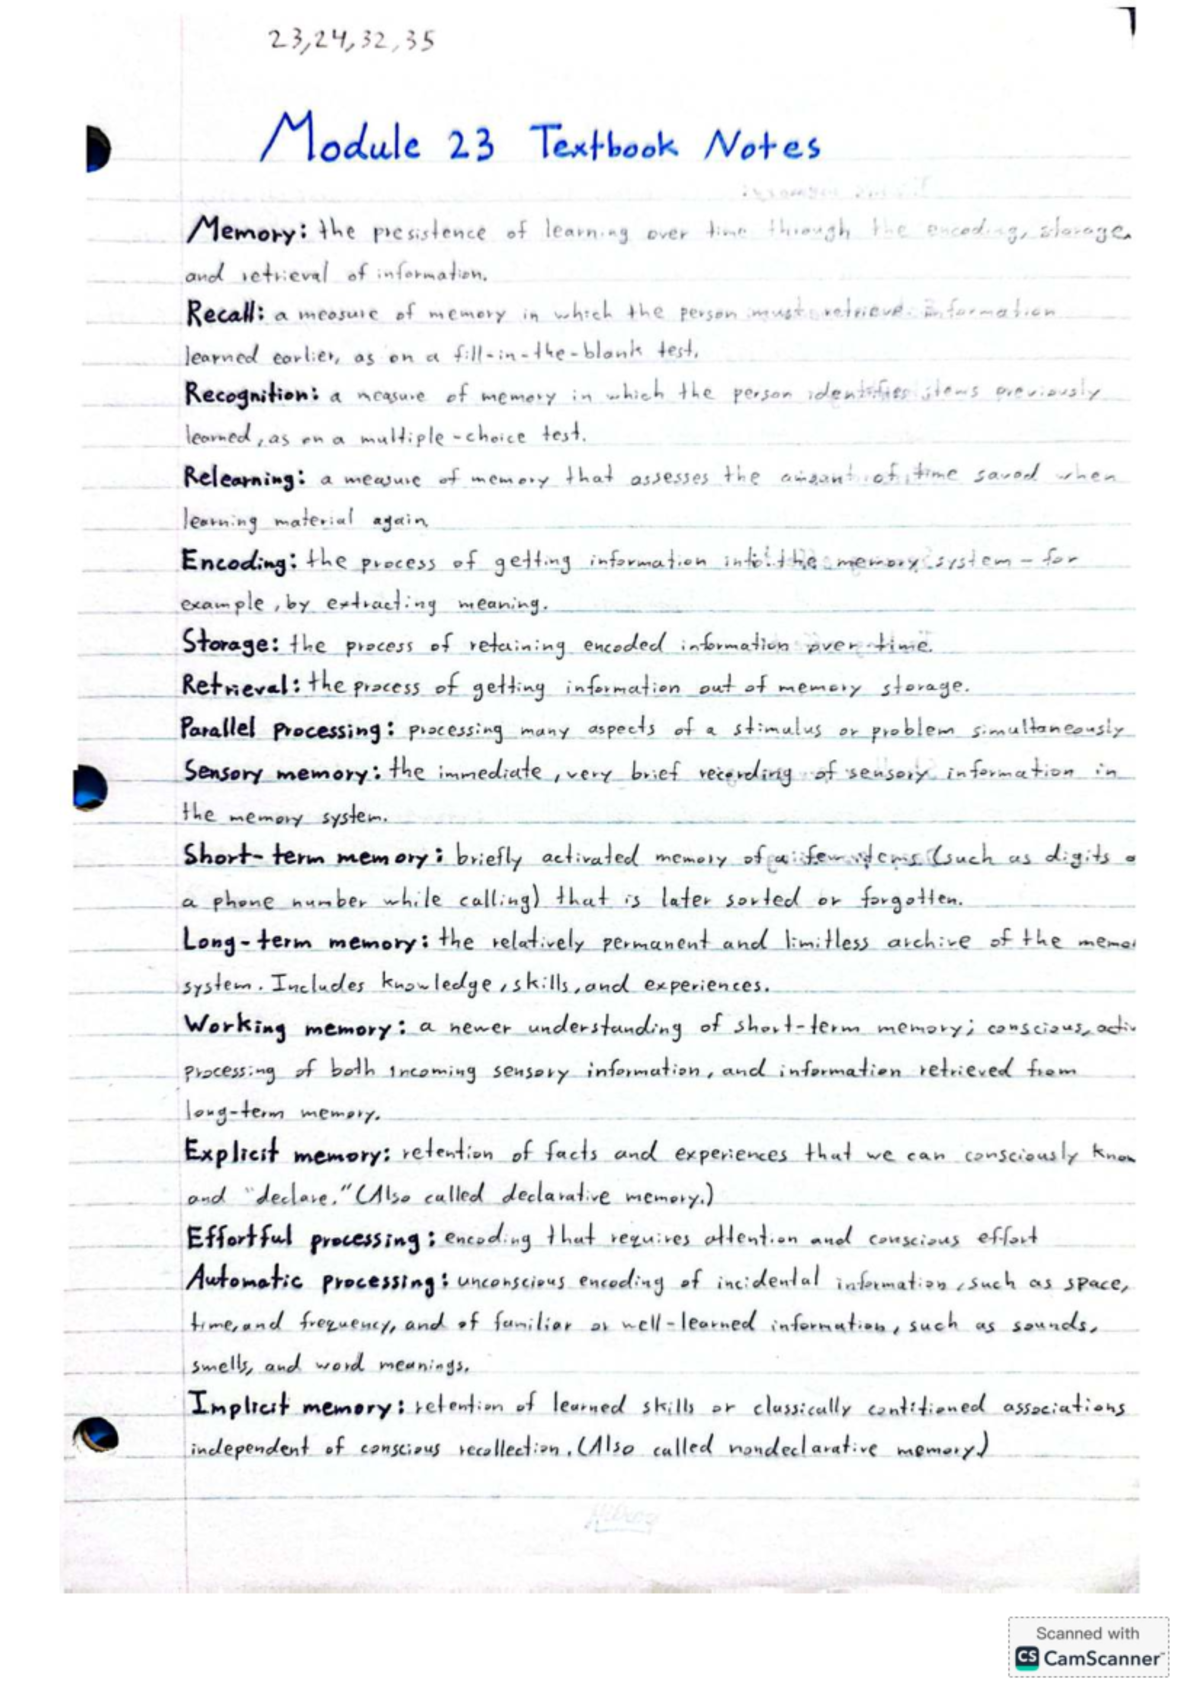 23,24,32,35
Module 23 Textbook Notes
Memory: the presistence of learning over time through the encoding, storage,
and retrieval of information.
Recall: a measure of memory in which the person must retrieve information
learned earlier, as on a fill-in-the-blank test.
Recognition: a measure of memory in which the person identifies items previously
learned, as on a multiple-choice test.
Relearning: a measure of memory that assesses the amount of time saved when
learning material again.
Encoding: the process of getting information into the memory system - for
example, by extracting meaning.
Storage: the process of retaining encoded information over time.
Retrieval: the process of getting information out of memory storage.
Parallel Processing: processing many aspects of a stimulus or problem simultaneously
Sensory memory: the immediate, very brief recording of sensory information in
the memory system.
Short-term memory: briefly activated memory of a few items (such as digits o
a phone number while calling) that is later sorted or forgotten.
Long-term memory: the relatively permanent and limitless archive of the memo
system. Includes knowledge, skills, and experiences.
Working memory: a newer understanding of short-term memory; conscious, activ
processing of both incoming sensory information, and information retrieved from
long-term memory.
Explicit memory: retention of facts and experiences that we can consciously know
and "declare." (Also called declarative memory.)
Effortful processing: encoding that requires attention and conscious effort
Automatic processing: unconscious encoding of incidental information, such as space,
time, and frequency, and of familiar or well-learned information, such as sounds,
smells, and word meanings.
Implicit memory: retention of learned skills or classically contitioned associations
independent of conscious recollection. (Also called nondeclarative memory)
Scanned with
CS CamScanner